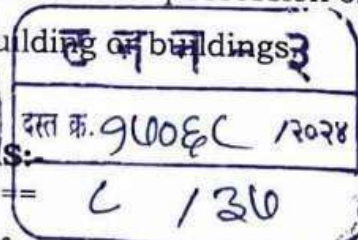 uilding of buildings
न न - ३
दस्त क्र. १७०६८ /२०२४
s:-
==
८ / ३७